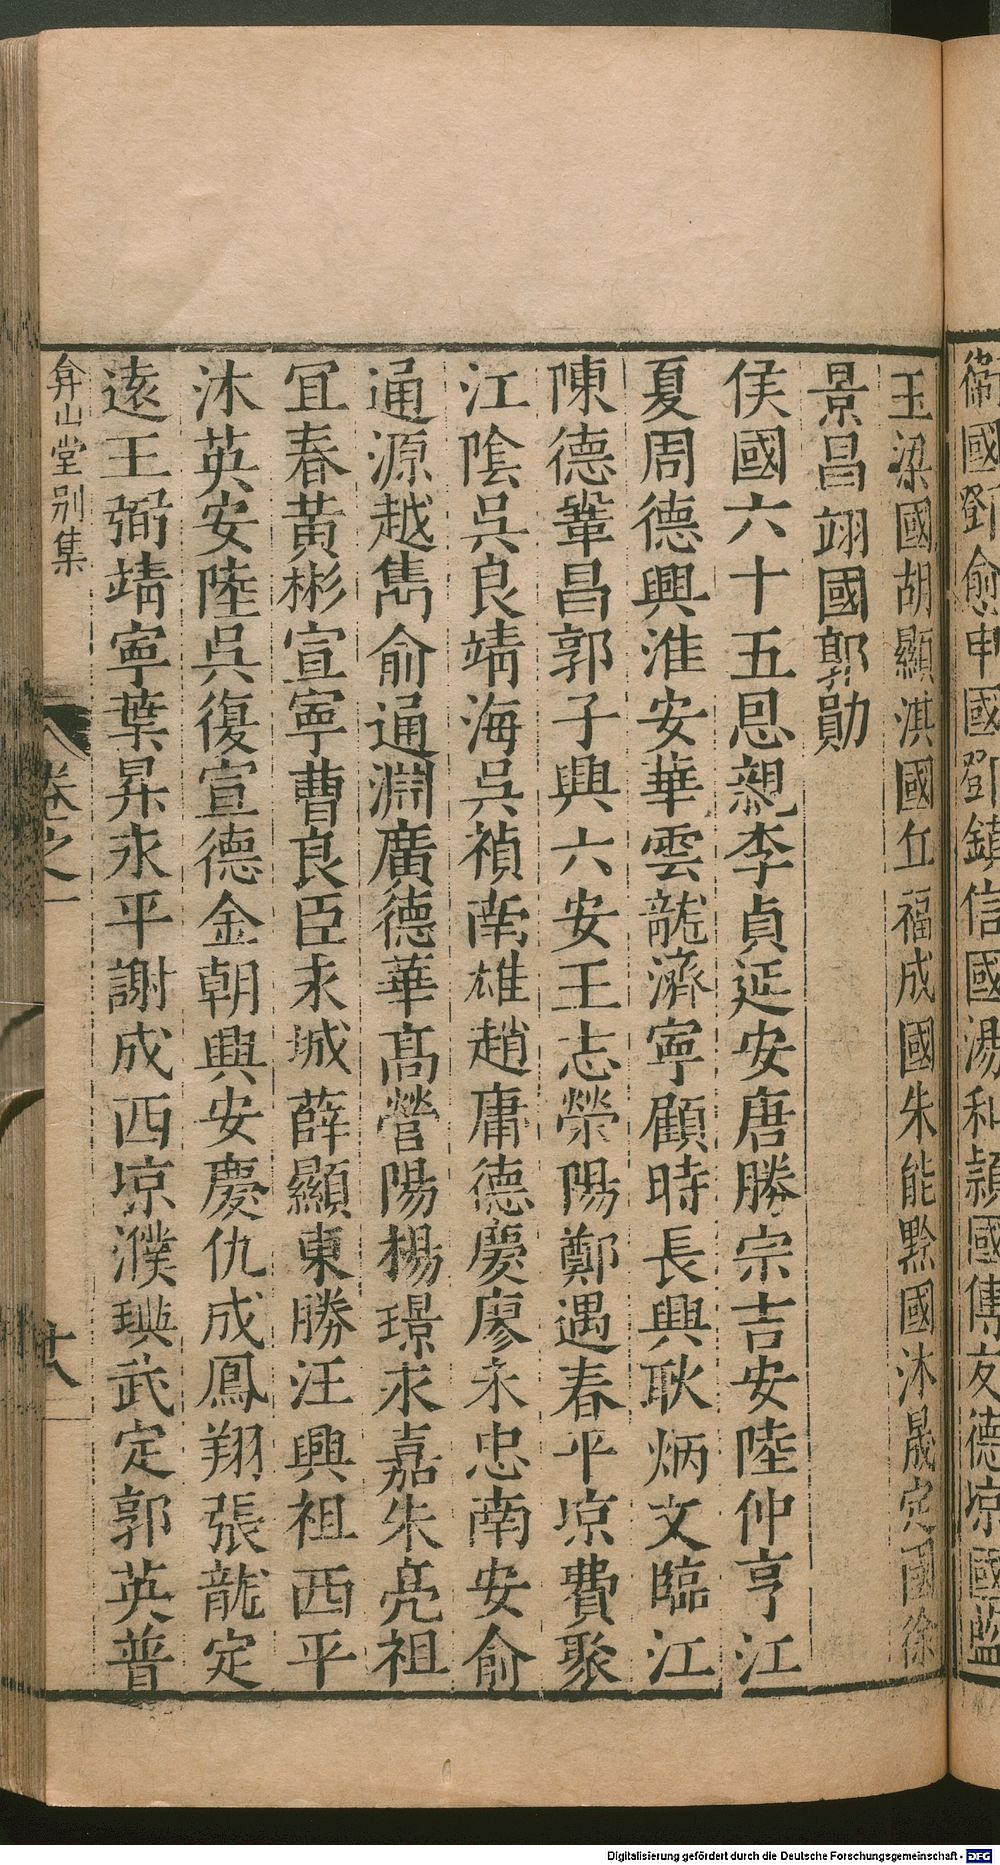 衞國鄧愈申國鄧鎮信國湯和潁國傅友德凉國藍
玉梁國胡顯淇國丘福成國朱能黔國沐晟定國徐
景昌翊國郭勛
侯國六十五恩親李貞延安唐勝宗吉安陸仲亨江
夏周德興淮安華雲龍濟寧顧時長興耿炳文臨江
陳德鞏昌郭子興六安王志滎陽鄭遇春平凉費聚
江陰吳良靖海吳禎南雄趙庸德慶廖永忠南安俞
通源越雋俞通淵廣德華高營陽楊璟永嘉朱亮祖
宜春黃彬宣寧曹良臣永城薛顯東勝汪興祖西平
沐英安陸吳復宣德金朝興安慶仇成鳳翔張龍定
遠王弼靖寧葉昇永平謝成西凉濮璵武定郭英普
弇山堂别集
卷之一
廿八
Digitalisierung gefördert durch die Deutsche Forschungsgemeinschaft - DFG